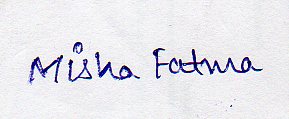 Misha Fatma